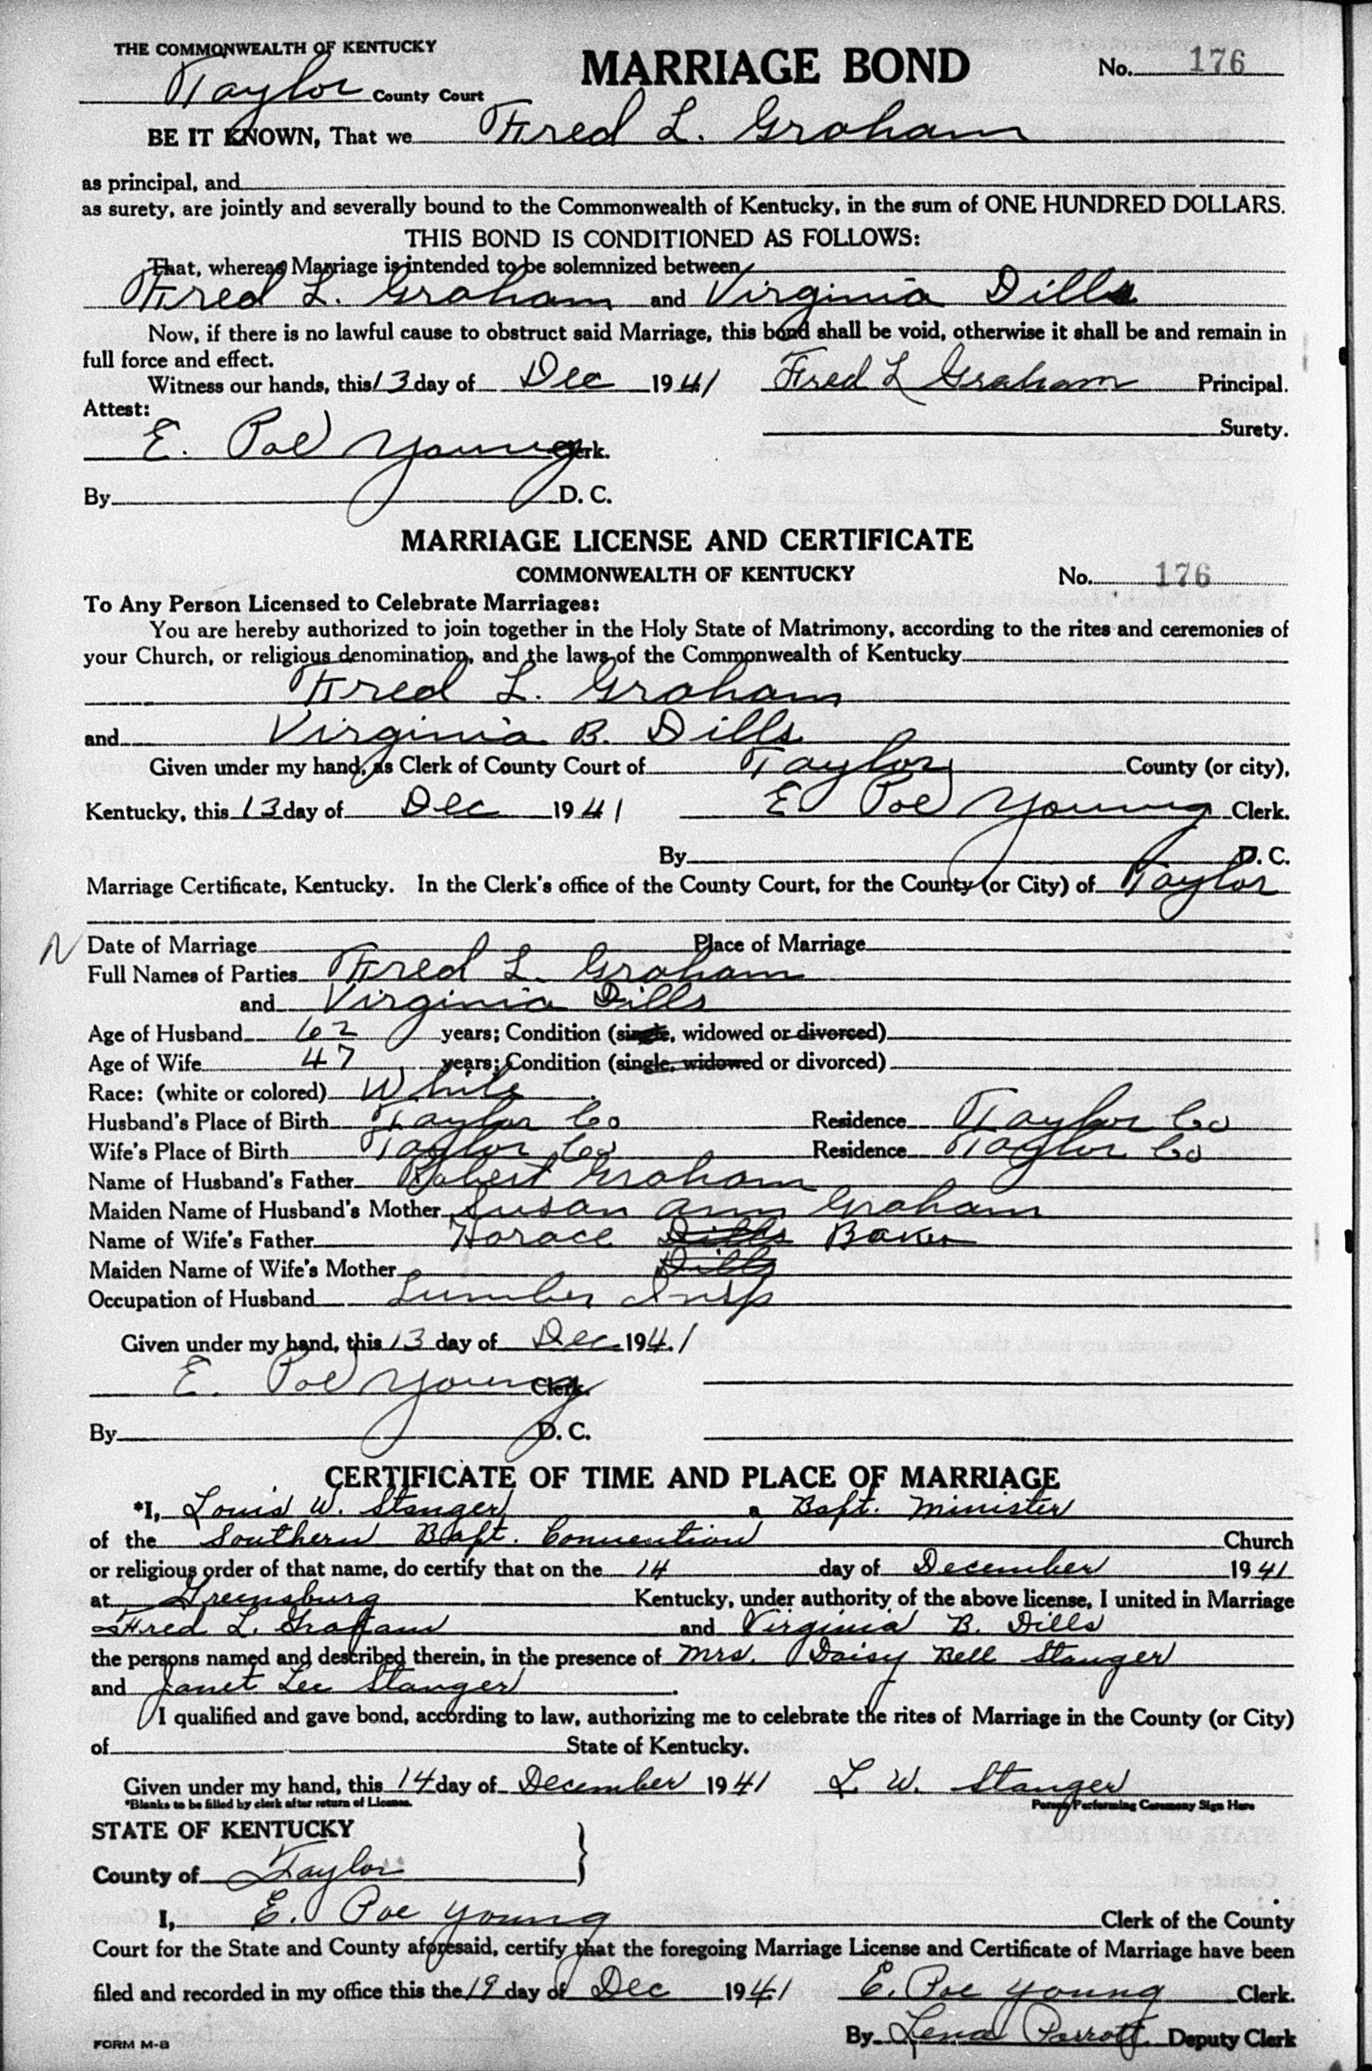 THE COMMONWEALTH OF KENTUCKY
MARRIAGE BOND
No. 176
Taylor County Court
BE IT KNOWN, That we Fred L. Graham
as principal, and
as surety, are jointly and severally bound to the Commonwealth of Kentucky, in the sum of ONE HUNDRED DOLLARS.
THIS BOND IS CONDITIONED AS FOLLOWS:
That, whereas Marriage is intended to be solemnized between
Fred L. Graham and Virginia Dills
Now, if there is no lawful cause to obstruct said Marriage, this bond shall be void, otherwise it shall be and remain in
full force and effect.
Witness our hands, this 13 day of Dec 1941 Fred L Graham Principal.
Attest:
Surety.
E. Poe Young Clerk.
By D. C.
MARRIAGE LICENSE AND CERTIFICATE
COMMONWEALTH OF KENTUCKY No. 176
To Any Person Licensed to Celebrate Marriages:
You are hereby authorized to join together in the Holy State of Matrimony, according to the rites and ceremonies of
your Church, or religious denomination, and the laws of the Commonwealth of Kentucky
Fred L. Graham
and Virginia B. Dills
Given under my hand, as Clerk of County Court of Taylor County (or city),
Kentucky, this 13 day of Dec 1941 E. Poe Young Clerk.
By D. C.
Marriage Certificate, Kentucky. In the Clerk's office of the County Court, for the County (or City) of Taylor
N Date of Marriage Place of Marriage
Full Names of Parties Fred L. Graham
and Virginia Dills
Age of Husband 62 years; Condition (single, widowed or divorced)
Age of Wife 47 years; Condition (single, widowed or divorced)
Race: (white or colored) White
Husband's Place of Birth Taylor Co Residence Taylor Co
Wife's Place of Birth Taylor Co Residence Taylor Co
Name of Husband's Father Robert Graham
Maiden Name of Husband's Mother Susan Ann Graham
Name of Wife's Father Horace Dills Baker
Maiden Name of Wife's Mother Dills
Occupation of Husband Lumber Insp
Given under my hand, this 13 day of Dec 1941
E. Poe Young Clerk.
By D. C.
CERTIFICATE OF TIME AND PLACE OF MARRIAGE
*I, Louis W. Stanger a Bapt. Minister
of the Southern Bapt. Convention Church
or religious order of that name, do certify that on the 14 day of December 1941
at Greensburg Kentucky, under authority of the above license, I united in Marriage
Fred L. Graham and Virginia B. Dills
the persons named and described therein, in the presence of Mrs. Daisy Bell Stanger
and Janet Lee Stanger.
I qualified and gave bond, according to law, authorizing me to celebrate the rites of Marriage in the County (or City)
of State of Kentucky.
Given under my hand, this 14 day of December 1941 L. W. Stanger
*Blanks to be filled by clerk after return of License. Person Performing Ceremony Sign Here
STATE OF KENTUCKY
County of Taylor
I, E. Poe Young Clerk of the County
Court for the State and County aforesaid, certify that the foregoing Marriage License and Certificate of Marriage have been
filed and recorded in my office this the 19 day of Dec 1941 E. Poe Young Clerk.
FORM M-8 By Lena Parrott Deputy Clerk